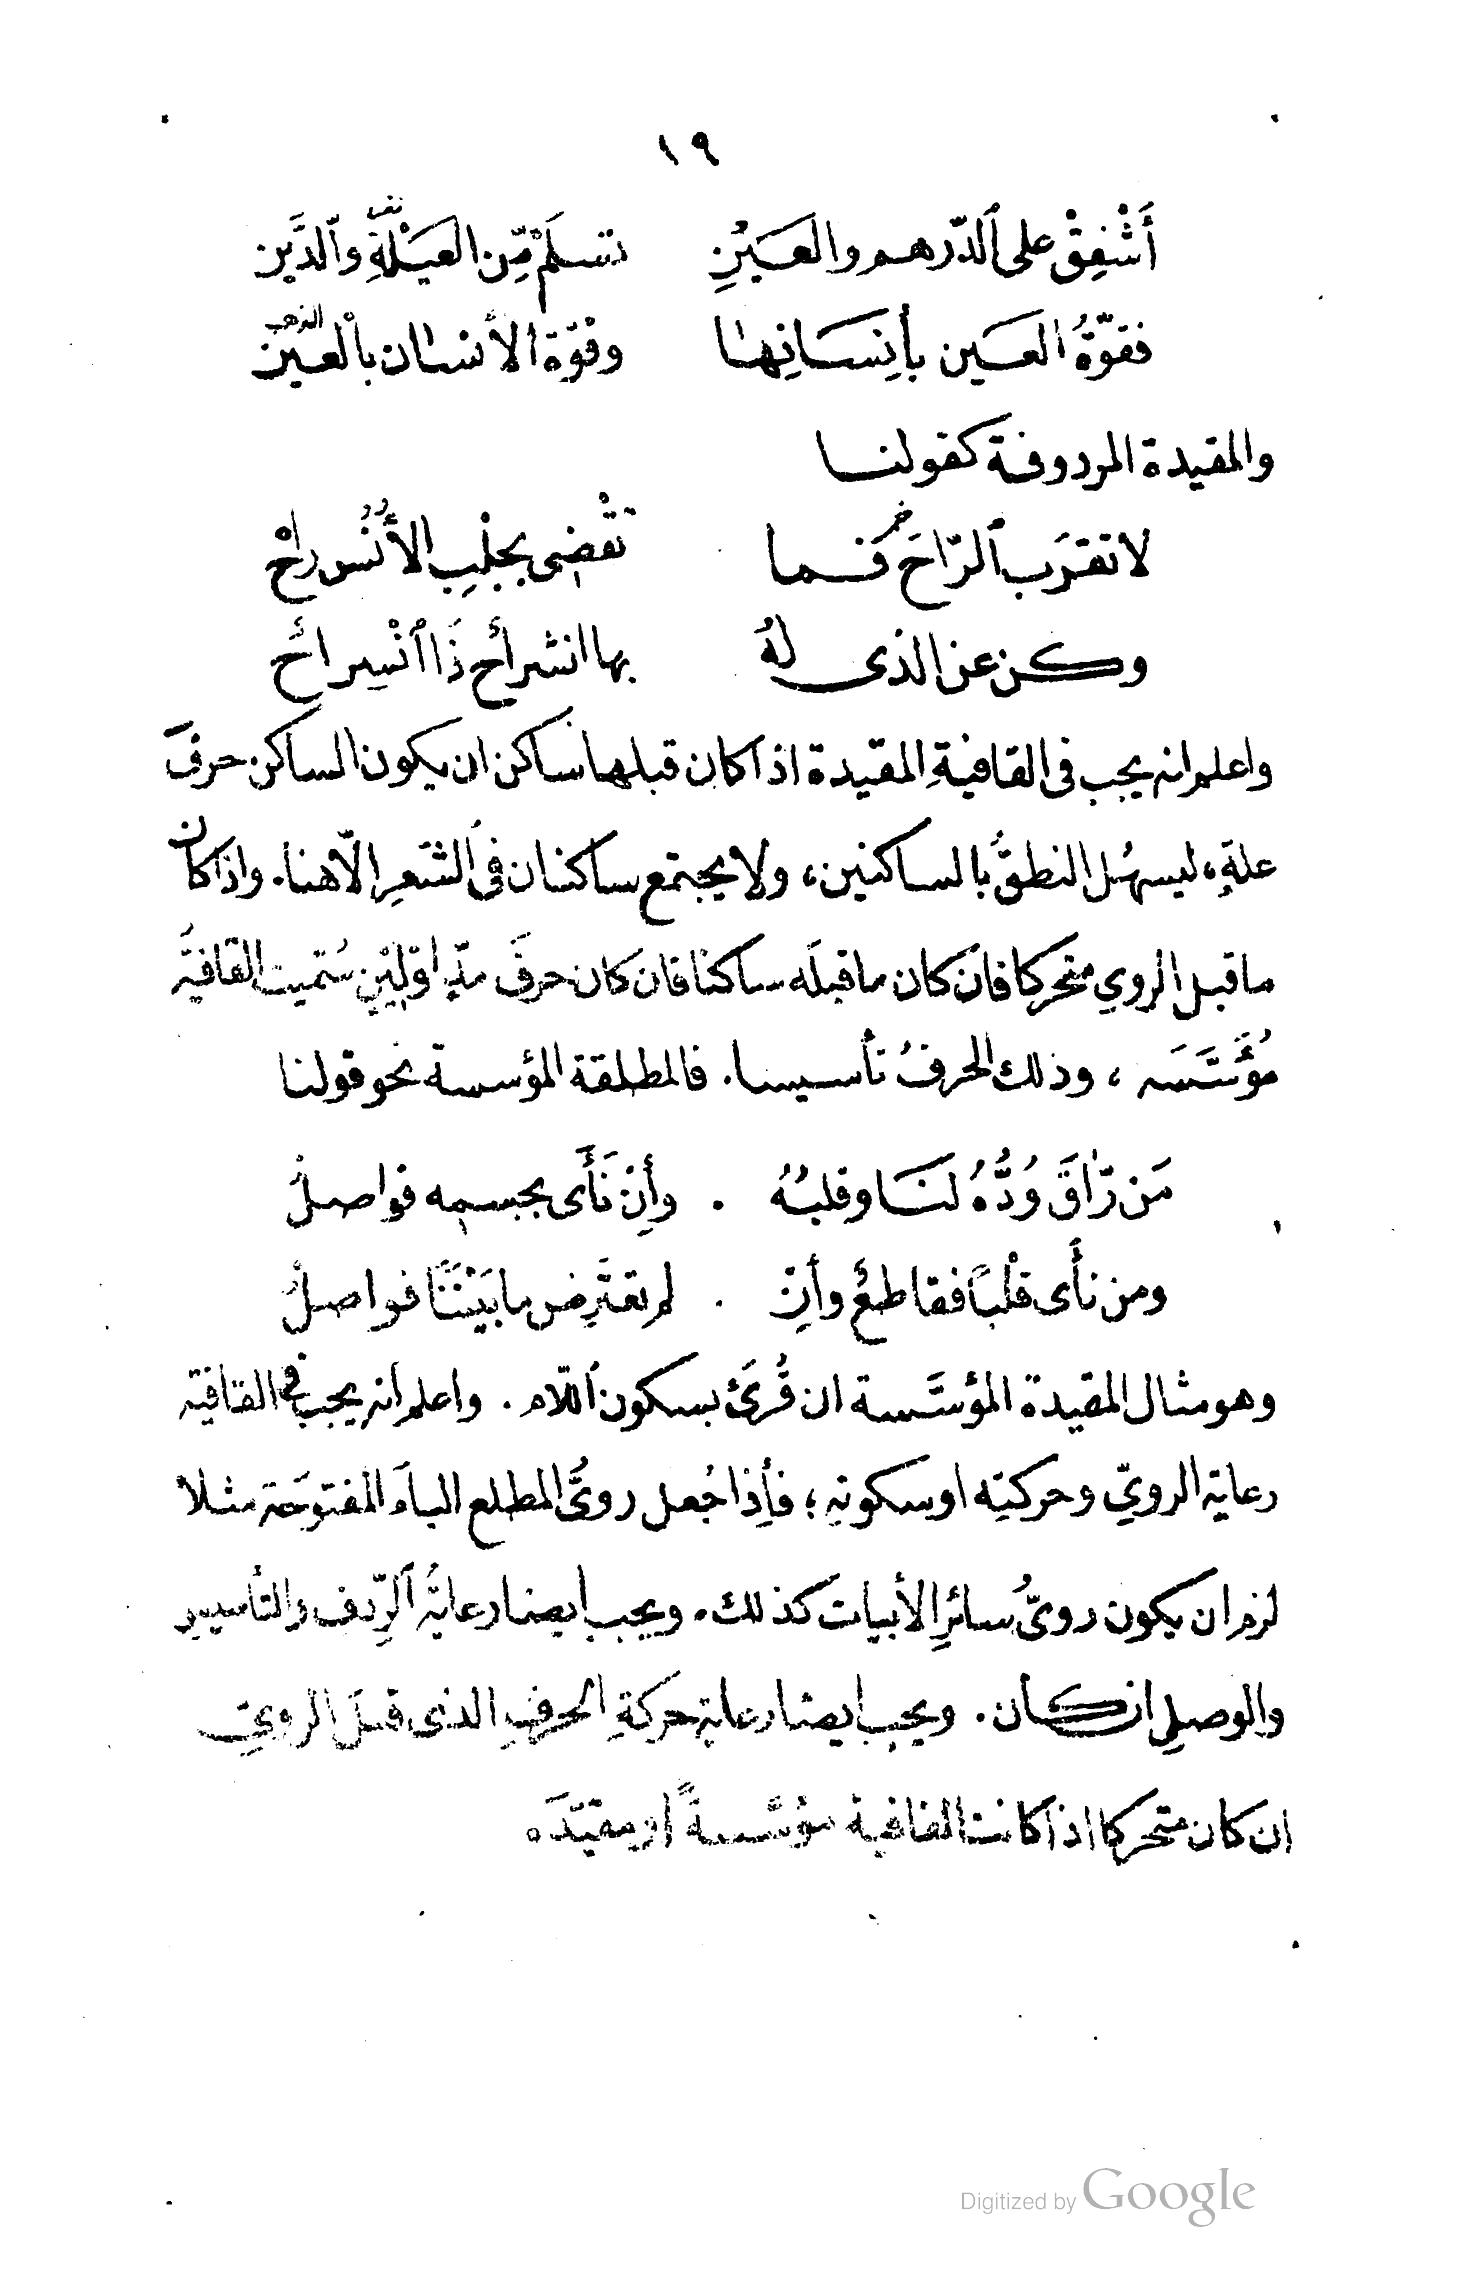 ١٩
أَشْفِقْ على ٱلدّرهم والعَيْنِ تسلَمْ مِّن العَيْلَةِ وٱلدَّين
فقوّةُ العَين بأِنسَانِها وقوّة الأنسان بالْعَين
الذهب
والمقيدة المردوفة كقولنا
لا تقرَب ٱلرّاحَ فما تقْضِى بجلْبِ الأُنُس راحْ
خمر
وكن عن الذى لهُ بها انشراح ذَا ٱنْسِراحْ
واعلم انه يجب فى القافيةِ المقيدة اذا كان قبلها ساكن ان يكون الساكن حرفَ
علةٍ، ليسهُل النطقُ بالساكنين، ولا يجتمع ساكنان فى ٱلشعرِ الّا هنا. واذا كان
ما قبل الروي متحركا فان كان ما قبلَه ساكنًا فان كان حرفَ مدٍّ اوّلينٍ سُمّيت القافيةُ
مُؤَسَّسَه ، وذلك الحرفُ تأسيسا. فالمطلقة المؤسسة نحو قولنا
مَن رّاقَ وُدُّهُ لنَا وقلبُهُ . وأِنْ نَأَى بجسمِه فواصلُ
ومن نأَى قلْباً فقاطعٌ وأِنْ . لم تعتَرِض ما بَيْنَنَا فواصلُ
وهو مثال المقيدة المؤسَّسة ان قُرِئَ بسكون ٱللّام . واعلم انه يجب فى القافية
رعاية الرويّ وحركتِه او سكونهِ ؛ فأِذا جُعل رويُّ المطلع الباءَ المفتوحَة مثلا
لزم ان يكون رويُّ سائرِ الأبيات كذلك. ويجب ايضا رعايةُ ٱلرِّدف والتأسيس
والوصلِ ان كان. ويجب ايضا رعاية حركةِ الحرفِ الذى قبلَ الرويّ
ان كان متحركا اذا كانت القافية مؤسَّسةً او مقيّدَه
Digitized by Google